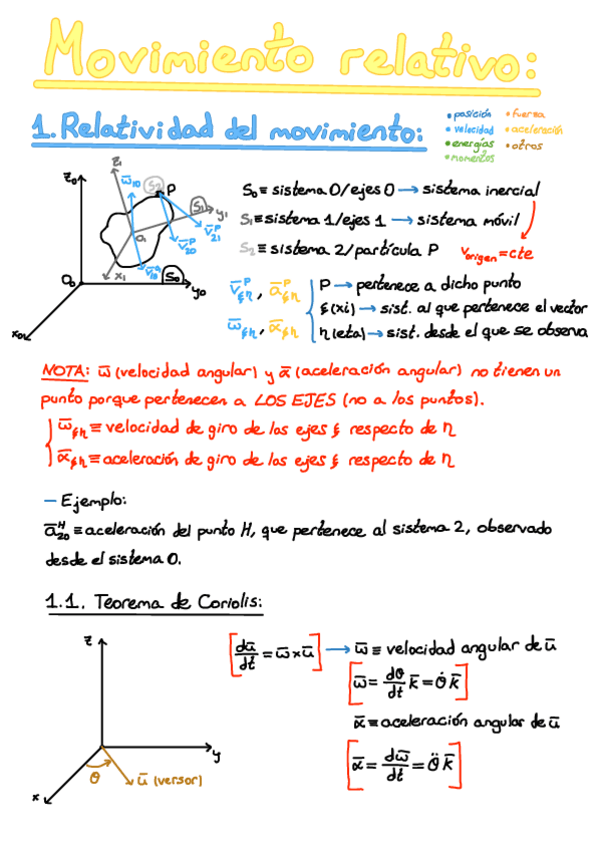 Movimiento relativo:
1. Relatividad del movimiento:
• posición • fuerza
• velocidad • aceleración
• energías • otros
• momentos
S₀ ≡ sistema 0/ejes 0 → sistema inercial
S₁ ≡ sistema 1/ejes 1 → sistema móvil
S₂ ≡ sistema 2/partícula P
v origen = cte
z₀
z₁
ω̄₁₀
S₂
P
S₁
y₁
O₁
v̄₂₀ᴾ
v̄₂₁ᴾ
x₁
S₀
O₀
y₀
x₀
v̄ᴾξη, āᴾξη
ω̄ξη, ᾱξη
P → pertenece a dicho punto
ξ (xi) → sist. al que pertenece el vector
η (eta) → sist. desde el que se observa
NOTA: ω̄ (velocidad angular) y ᾱ (aceleración angular) no tienen un
punto porque pertenecen a LOS EJES (no a los puntos).
ω̄ξη ≡ velocidad de giro de los ejes ξ respecto de η
ᾱξη ≡ aceleración de giro de los ejes ξ respecto de η
– Ejemplo:
ā₂₀ᴴ ≡ aceleración del punto H, que pertenece al sistema 2, observado
desde el sistema 0.
1.1. Teorema de Coriolis:
z
y
x
θ
ū (versor)
[dū/dt = ω̄ × ū] → ω̄ ≡ velocidad angular de ū
[ω̄ = dθ/dt k̄ = θ̇ k̄]
ᾱ ≡ aceleración angular de ū
[ᾱ = dω̄/dt = θ̈ k̄]